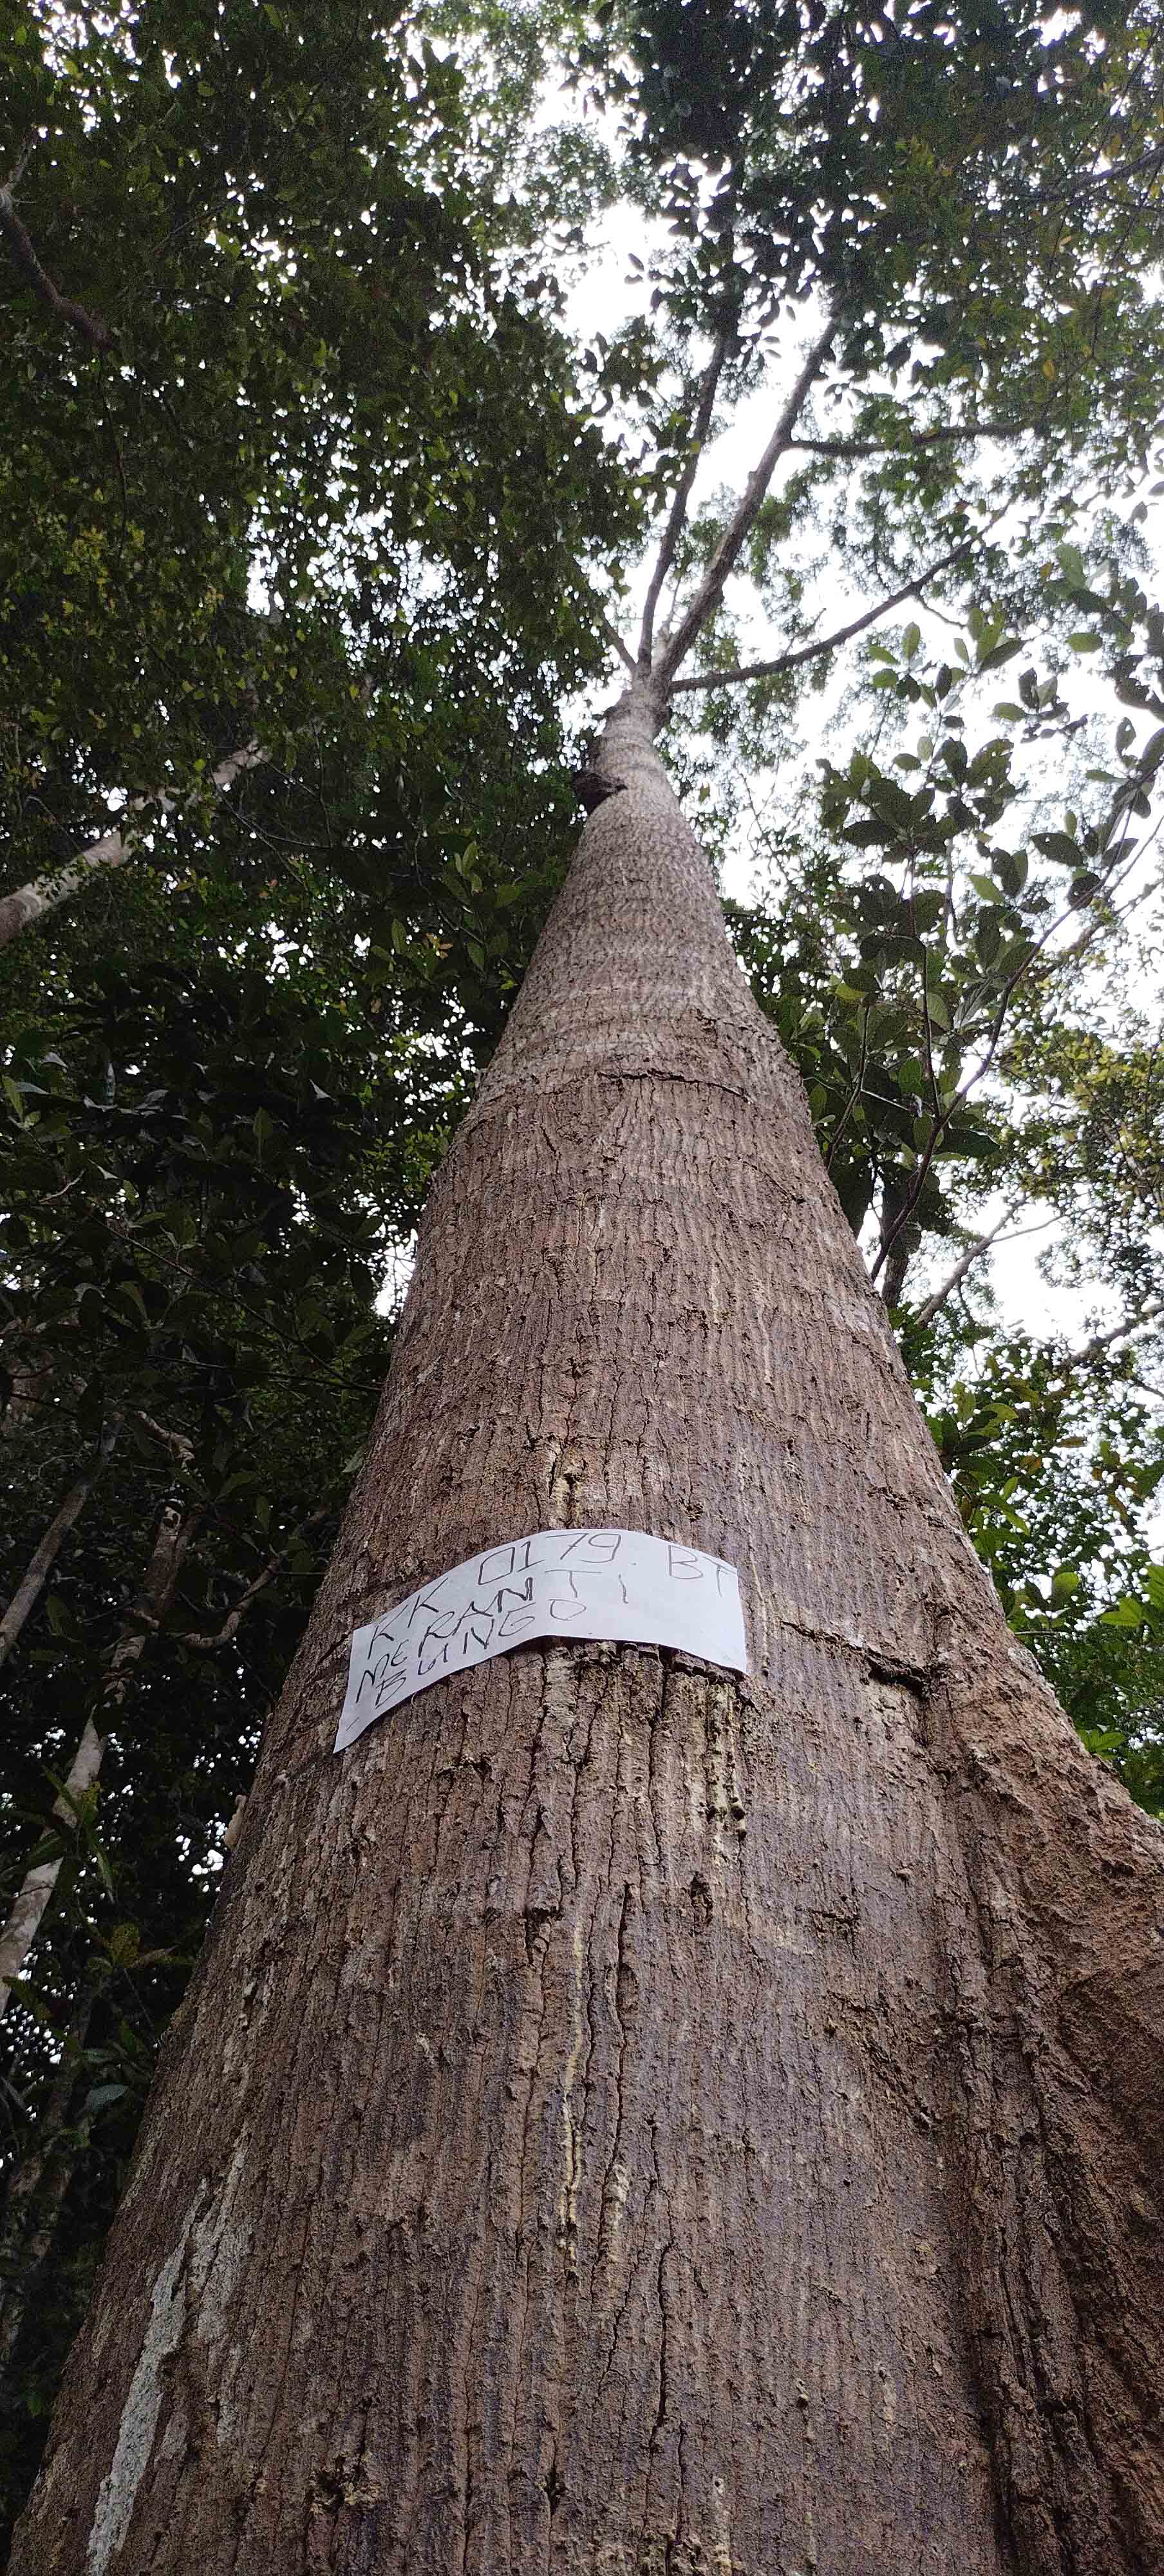 KK 0179. BT
MERANTI
BUNGO